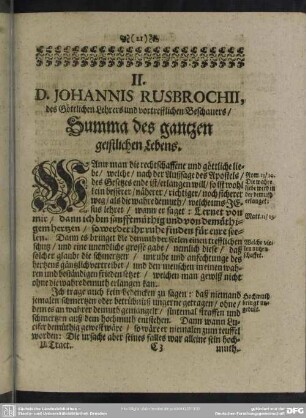 (21)
II.
D. JOHANNIS RUSBROCHII,
des Göttlichen Lehrers und vortrefflichen Beschauers/
Summa des gantzen
geistlichen Lebens.
Wann man die rechtschaffene und göttliche lie-
be / welche / nach der Aussage des Apostels /
des Gesetzes ende ist/erlangen will/so ist wol
kein besserer / näherer / richtiger / noch sicherer
weg / als die wahre demuth / welche uns JE-
sus lehret / wann er saget: Lernet von
mir / dann ich bin sanfftmüthig und von demüthi-
gem hertzen / so werdet ihr ruhe finden für eure see-
len. Dann es bringet die demuth der seelen einen trefflichen
schutz / und eine unendliche grosse gabe / nemlich diese / daß
solcher glaube die schmertzen / unruhe und anfechtunge des
hertzens gäntzlich vertreibet / und den menschen in einen wah-
ren und beständigen frieden setzet / welchen man gewiß nicht
ohne die wahre demuth erlangen kan.
Ich trage auch kein bedencken zu sagen: daß niemand
jemalen schmertzen oder betrübnüß ungerne getragen / ohne /
dem es an wahrer demuth gemangelt /
schmertzen auß dem hochmuth entstehen. Dann wann Lu-
cifer demüthig gewest wäre / so wäre er niemalen zum teuffel
worden: Die ursache aber seines falles war alleine sein hoch-
II. Tract. muth.
Rom. 13/10.
Die wahre
liebe wird in
der demuth
erlanget.
Matt. 11/29.
Hochmuth
bringet un-